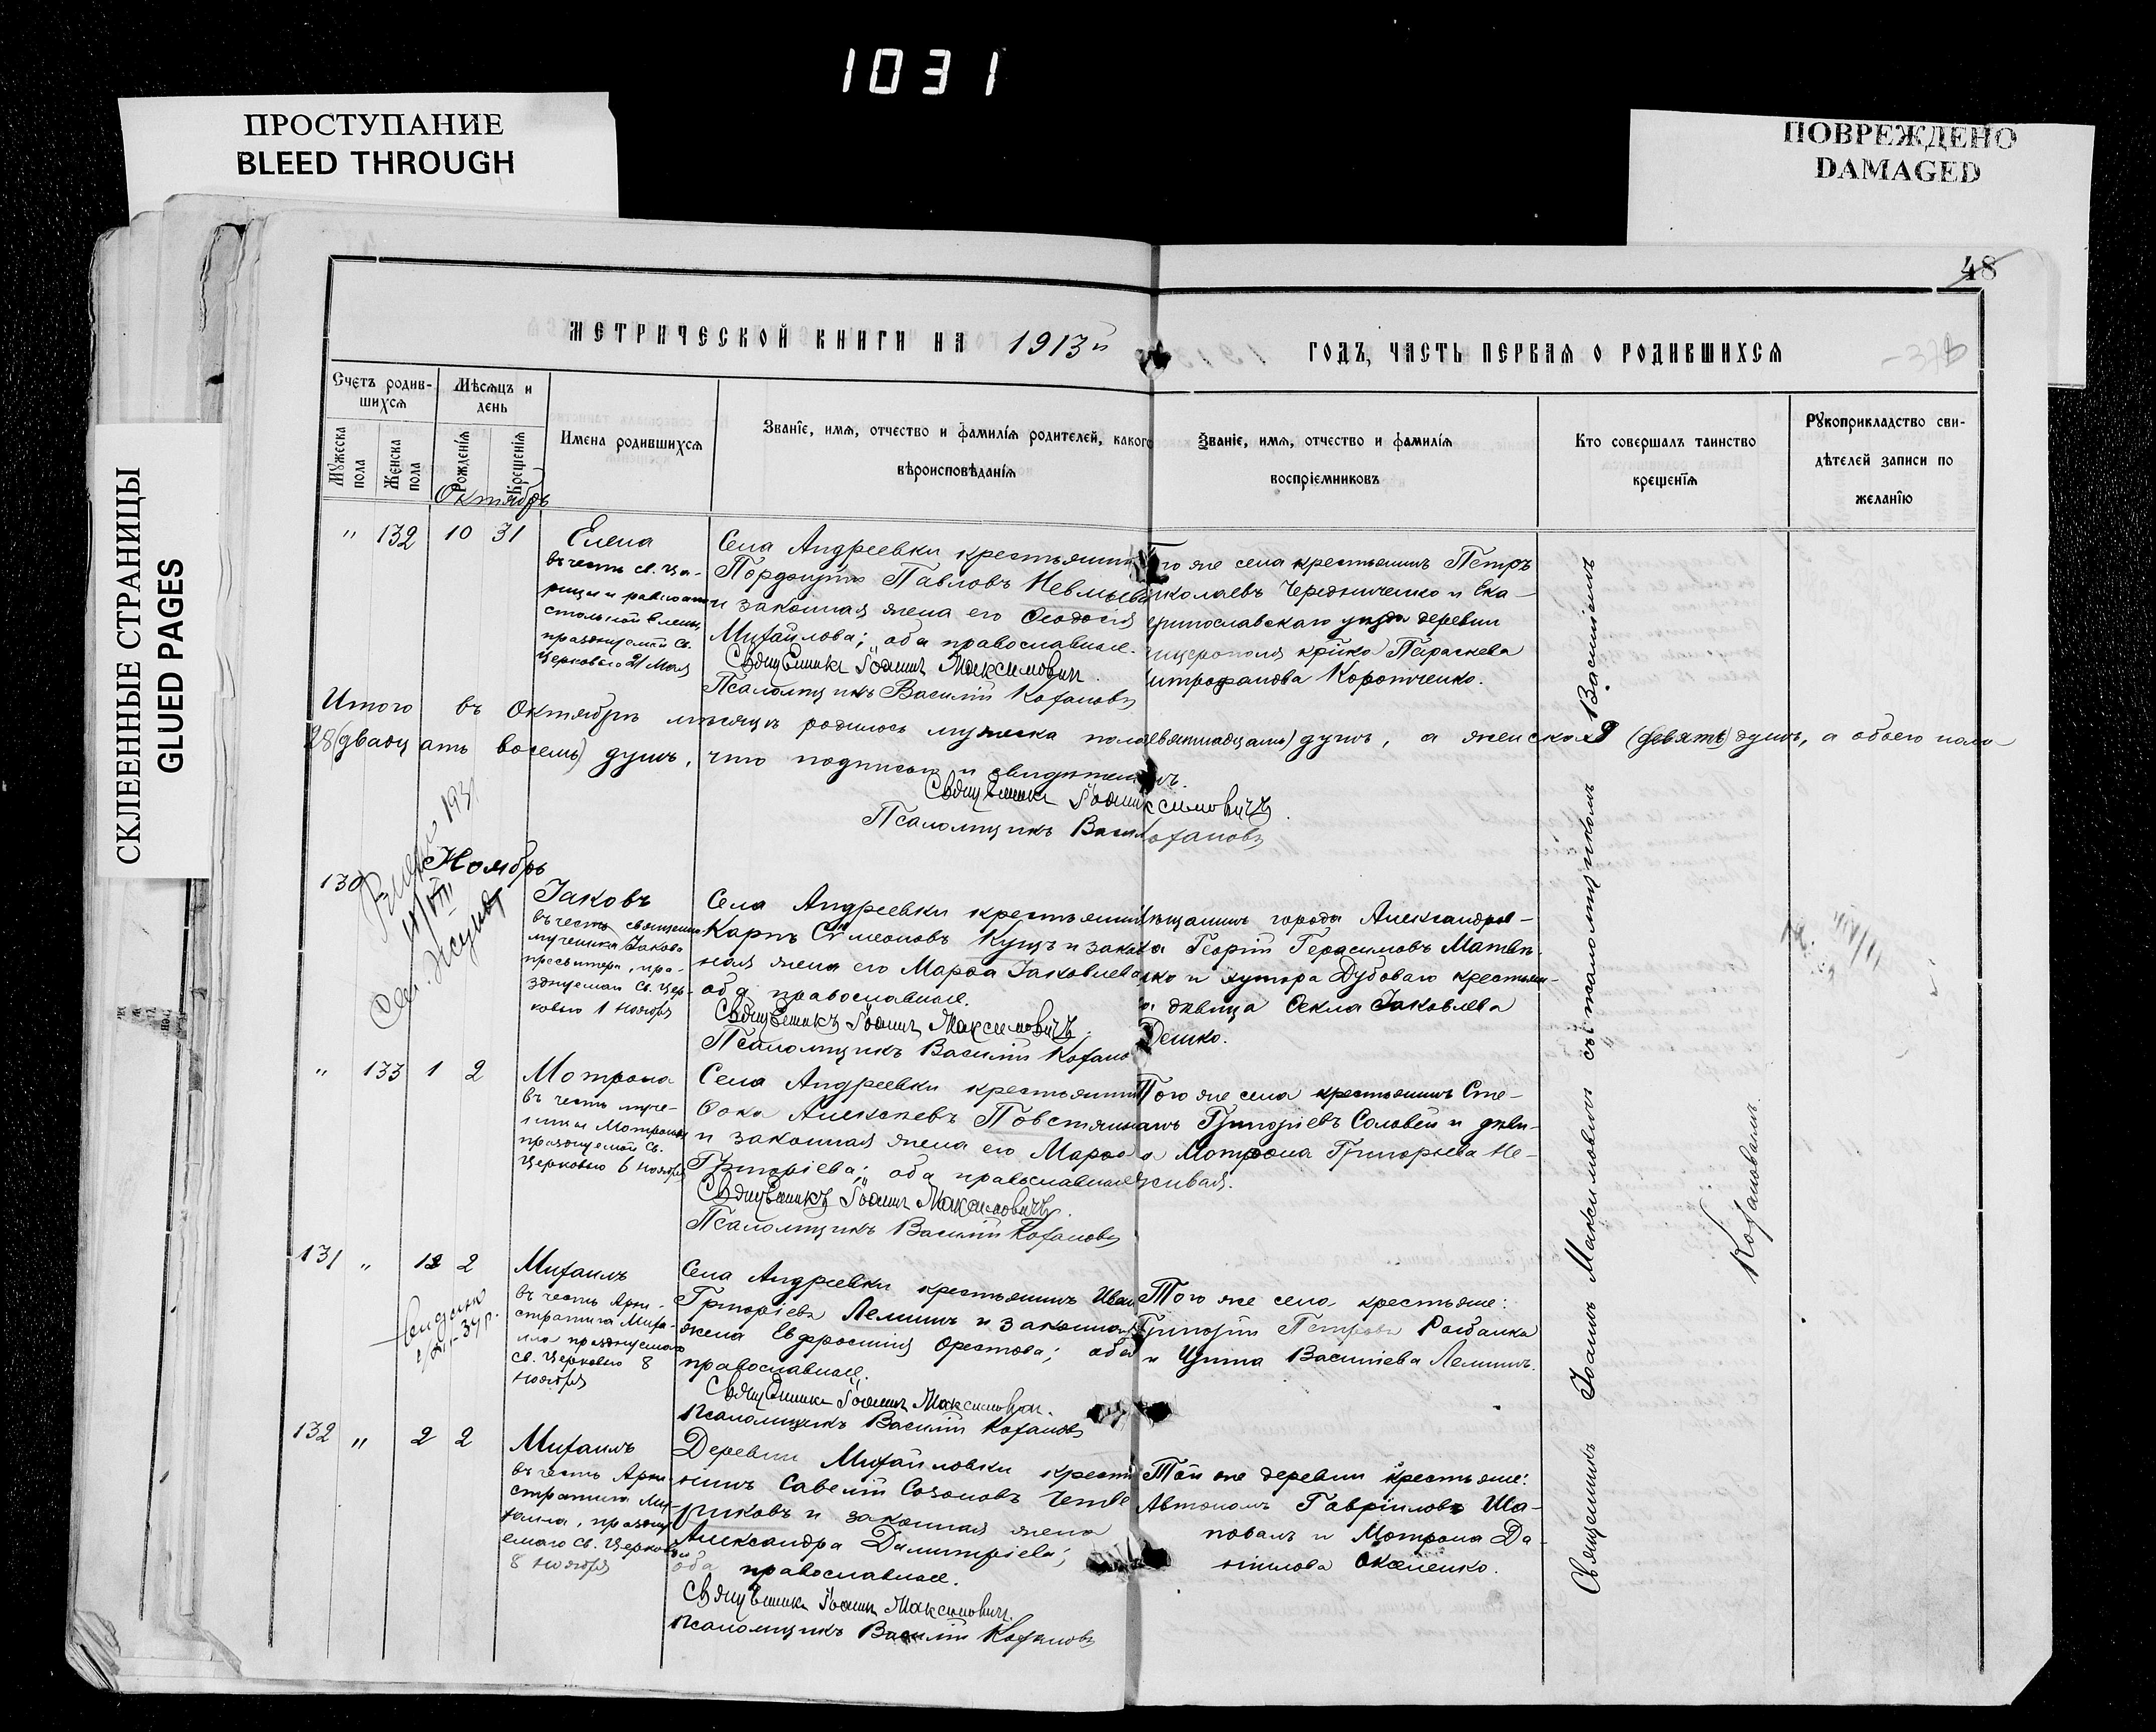 1031
ПРОСТУПАНИЕ
BLEED THROUGH
ПОВРЕЖДЕНО
DAMAGED
СКЛЕЕННЫЕ СТРАНИЦЫ
GLUED PAGES
48
МЕТРИЧЕСКОЙ КНИГИ НА 1913й ГОДЪ, ЧАСТЬ ПЕРВАЯ О РОДИВШИХСЯ
Счетъ родив-
шихся
Мужеска пола
Женска пола
Мѣсяцъ и
день
Рожденія
Крещенія
Имена родившихся
Званіе, имя, отчество и фамилія родителей, какого
вѣроисповѣданія
Званіе, имя, отчество и фамилія
воспріемниковъ
Кто совершалъ таинство
крещенія
Рукоприкладство сви-
дѣтелей записи по
желанію
Октябрь
" 132 10 31
Елена
въ честь св. Ца-
рицы и равноапо
стольной Елены,
празднуемой Св.
Церковью 21 Мая
Села Андреевки крестьянин
Павловъ
и законная жена его Ѳеодосія
Михайлова; оба православные.
Священникъ Іоаннъ Максимович.
Псаломщикъ Василій Кохановъ
го же села крестьянинъ Петръ
иколаевъ Чередниченко и Ека-
еринославскаго уѣзда деревни
Параскева
итрофанова Коротченко.
Итого въ Октябрѣ мѣсяцѣ родилось мужеска пола девятнадцать) душъ, а женска 9 (девять) душъ, а обоего пола
28 (двадцать восемь) душъ, что подписомъ и свидѣтельст
Священникъ Іоанн ксимовичъ.
Псаломщикъ Васил охановъ
Ноябрь
130
Іаковъ
въ честь священно
мученика Іакова
пресвитера, пра-
зднуемаго Св. Цер-
ковью 1 Ноября
Села Андреевки крестьянин
Карпъ Сѵмеоновъ Кущъ и закон
ная жена его Марѳа Іаковлева
оба православные.
Священникъ Іоаннъ Максимовичъ.
Псаломщикъ Василій Кохано
ѣщанинъ города Александров-
а Георгій Герасимовъ Матвѣ
ко и хутора Дубоваго крестьян-
а дѣвица Ѳекла Іаковлева
Дешко.
" 133 1 2
Мотрона
въ честь муче-
ницы Мотроны
празднуемой Св.
Церковью 6 Ноября
Села Андреевки крестьянин
Ѳока Алексѣевъ
и законная жена его Марѳа
Григоріева; оба православные
Священникъ Іоаннъ Максимовичъ.
Псаломщикъ Василій Кохановъ
Того же села крестьянинъ Сте-
анъ Григоріевъ Соловей и дѣви-
а Мотрона Григорьева Не-
живая.
131 " 1 2
Михаилъ
въ честь Архи-
стратига Миха-
ила празднуемаго
св. Церковью 8
Ноября
Села Андреевки крестьянинъ Иван
Григоріевъ Лемишъ и законная
жена Евфросинія Орестова; оба
православные.
Священникъ Іоаннъ Максимович.
Псаломщикъ Василій Кохановъ
Того же села крестьяне:
Григорій Петровъ Рыбалка
и Василіева Лемишъ.
132 " 2 2
Михаилъ
въ честь Архи-
стратига Ми-
хаила, праздну
емаго св. Церковью
8 Ноября
Деревни Михайловки крестья
нинъ Савелій Созоновъ Четве
риковъ и законная жена
Александра Димитріева;
оба православные.
Священникъ Іоаннъ Максимович.
Псаломщикъ Василій Кохановъ
Той же деревни крестьяне:
Автономъ Гавріиловъ Ша-
повалъ и Мотрона Да-
ніилова
Священникъ Іоаннъ Максимовичъ съ псаломщикомъ Василіемъ
Кохановымъ.